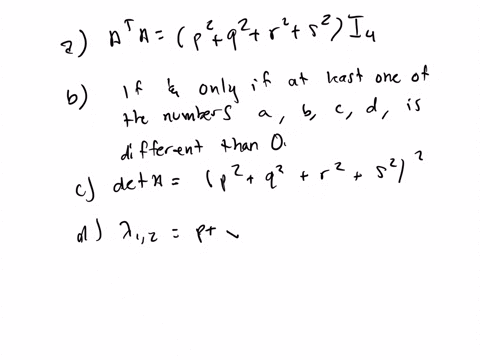 a) A^T A = (p² + q² + r² + s²) I₄
b) If & only if at least one of
the numbers a, b, c, d, is
different than 0.
c) det A = (p² + q² + r² + s²)²
d) λ₁,₂ = p+